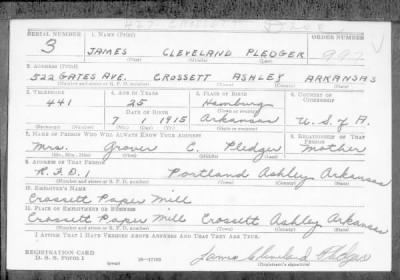 SERIAL NUMBER 1. NAME (Print) ORDER NUMBER
3 JAMES CLEVELAND PLEDGER 997
(First) (Middle) (Last)
2. ADDRESS (Print)
522 GATES AVE. CROSSETT ASHLEY ARKANSAS
(Number and street or R. F. D. number) (Town) (County) (State)
3. TELEPHONE 4. AGE IN YEARS 5. PLACE OF BIRTH 6. COUNTRY OF CITIZENSHIP
441 25 Hamburg
DATE OF BIRTH (Town or county)
7 1 1915 Arkansas U.S. of A.
(Exchange) (Number) (Mo.) (Day) (Yr.) (State or country)
7. NAME OF PERSON WHO WILL ALWAYS KNOW YOUR ADDRESS 8. RELATIONSHIP OF THAT PERSON
Mrs. Grover C. Pledger Mother
(Mr., Mrs., Miss) (First) (Middle) (Last)
9. ADDRESS OF THAT PERSON
R.F.D. 1 Portland Ashley Arkansas
(Number and street or R. F. D. number) (Town) (County) (State)
10. EMPLOYER'S NAME
Crossett Paper Mill
11. PLACE OF EMPLOYMENT OR BUSINESS
Crossett Paper Mill Crossett Ashley Arkansas
(Number and street or R. F. D. number) (Town) (County) (State)
I AFFIRM THAT I HAVE VERIFIED ABOVE ANSWERS AND THAT THEY ARE TRUE.
REGISTRATION CARD
D. S. S. Form 1 (over) 16-17105 James Cleveland Pledger
(Registrant's signature)